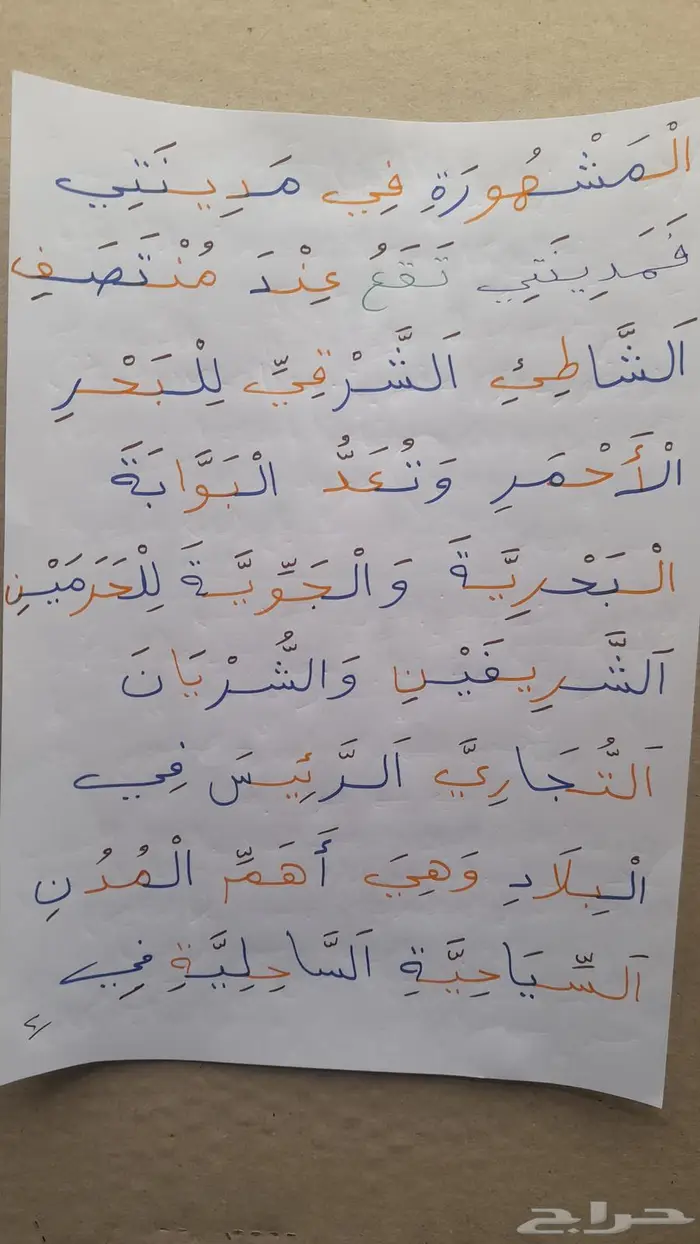 الْمَشْهُورَةِ فِي مَدِينَتِي
فَمَدِينَتِي تَقَعُ عِنْدَ مُنْتَصَفِ
اَلشَّاطِئِ اَلشَّرْقِيِّ لِلْبَحْرِ
الْأَحْمَرِ وَتُعَدُّ الْبَوَّابَةَ
الْبَحْرِيَّةَ وَالْجَوِّيَّةَ لِلْحَرَمَيْنِ
اَلشَّرِيفَيْنِ وَالشُّرْيَانَ
اَلتُّجَارِيَّ اَلرَّئِيسَ فِي
الْبِلَادِ وَهِيَ أَهَمِّ الْمُدُنِ
اَلسِّيَاحِيَّةِ اَلسَّاحِلِيَّةِ فِي
حراج